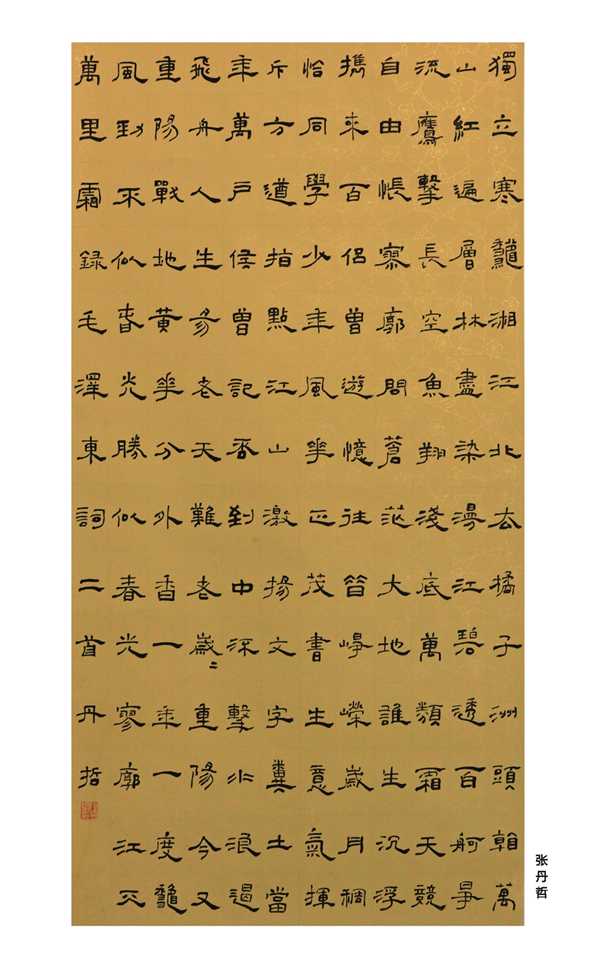 獨立寒龝湘江北去橘子洲頭看萬
山紅遍層林盡染漫江碧透百舸爭
流鷹擊長空魚翔淺底萬類霜天競
自由悵寥廓問蒼茫大地誰主沉浮
攜來百侶曾遊憶往昔崢嶸歲月稠
恰同學少年風華正茂書生意氣揮
斥方遒指點江山激揚文字糞土當
年萬戶侯曾記否到中流擊水浪遏
飛舟人生易老天難老歲〻重陽今又
重陽戰地黃華分外香一年一度龝
風勁不似春光勝似春光寥廓江天
萬里霜錄毛澤東詞二首丹哲
张丹哲